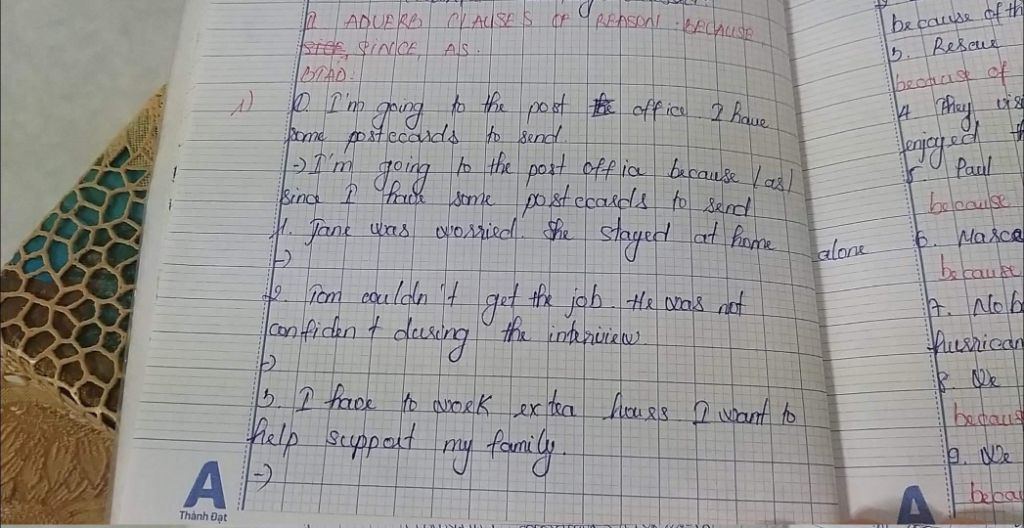 2. ADVERB CLAUSES OF REASON: BECAUSE,
SINCE, AS.
1)
0. I'm going to the post office I have
some postccards to send.
→ I'm going to the post offic because / as/
since I have some postccards to send
1. Jane was worried. She stayed at home alone
→
2. Tom couldn't get the job. He was not
confident during the interview.
→
3. I have to work extra hours I want to
help support my family.
→
A
Thành Đạt
because of th
3. Rescue
because of
4. They vis
enjoyed
5. Paul
because
6. Masca
because
7. Nob
hurrican
8. We
becaus
9. We
becau
A